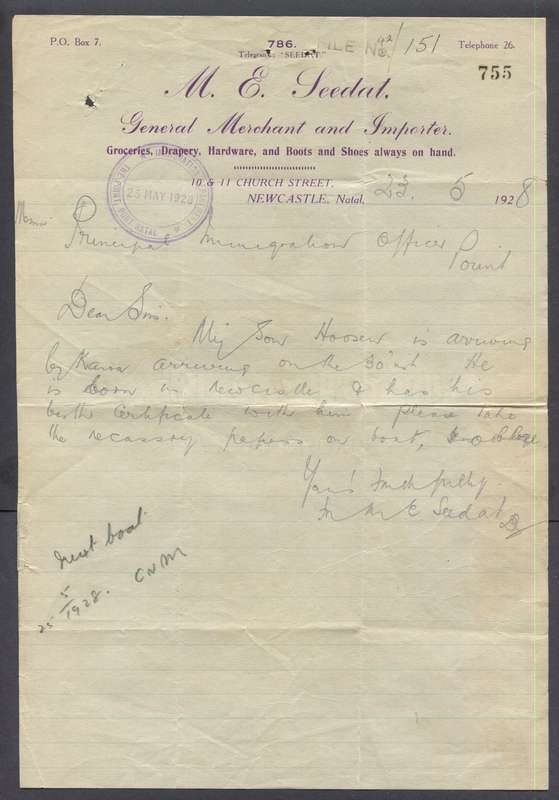 P.O. Box 7.
786.
Telegrams: "SEEDAT."
FILE No. 42/151
Telephone 26.
755
M. E. Seedat.
General Merchant and Importer.
Groceries, Drapery, Hardware, and Boots and Shoes always on hand.
10 & 11 CHURCH STREET,
NEWCASTLE, Natal, 23. 5 1928
25 MAY 1928
PORT NATAL
Principal Immigration Officer
Point
Dear Sirs.
My Son Hoosen is arriving
by Karoa arriving on the 30 inst He
is born in Newcastle & has his
berth Certificate with him please take
the necassory papers on boat, & oblige
Yours Faithfully
M E Seedat
Meet boat
CNM
25 5/1928.